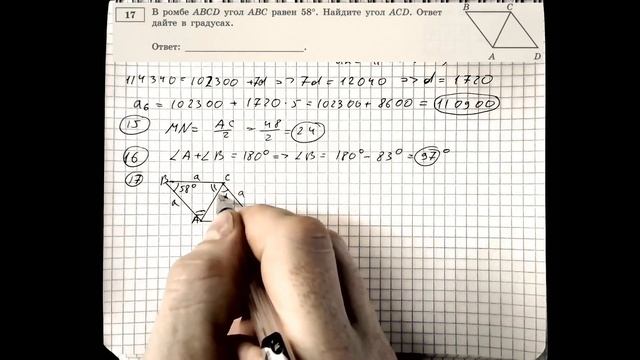 17
В ромбе ABCD угол ABC равен 58°. Найдите угол ACD. Ответ
дайте в градусах.
Ответ:
B C
A D
114340=102300+7d=>7d=12040=>d=1720
a₆=102300+1720·5=102300+8600=110900
15 MN= AC/2 = 48/2 = 24
16 ∠A+∠B=180°=>∠B=180°-83°=97°
17 B a C
58°
a a
A